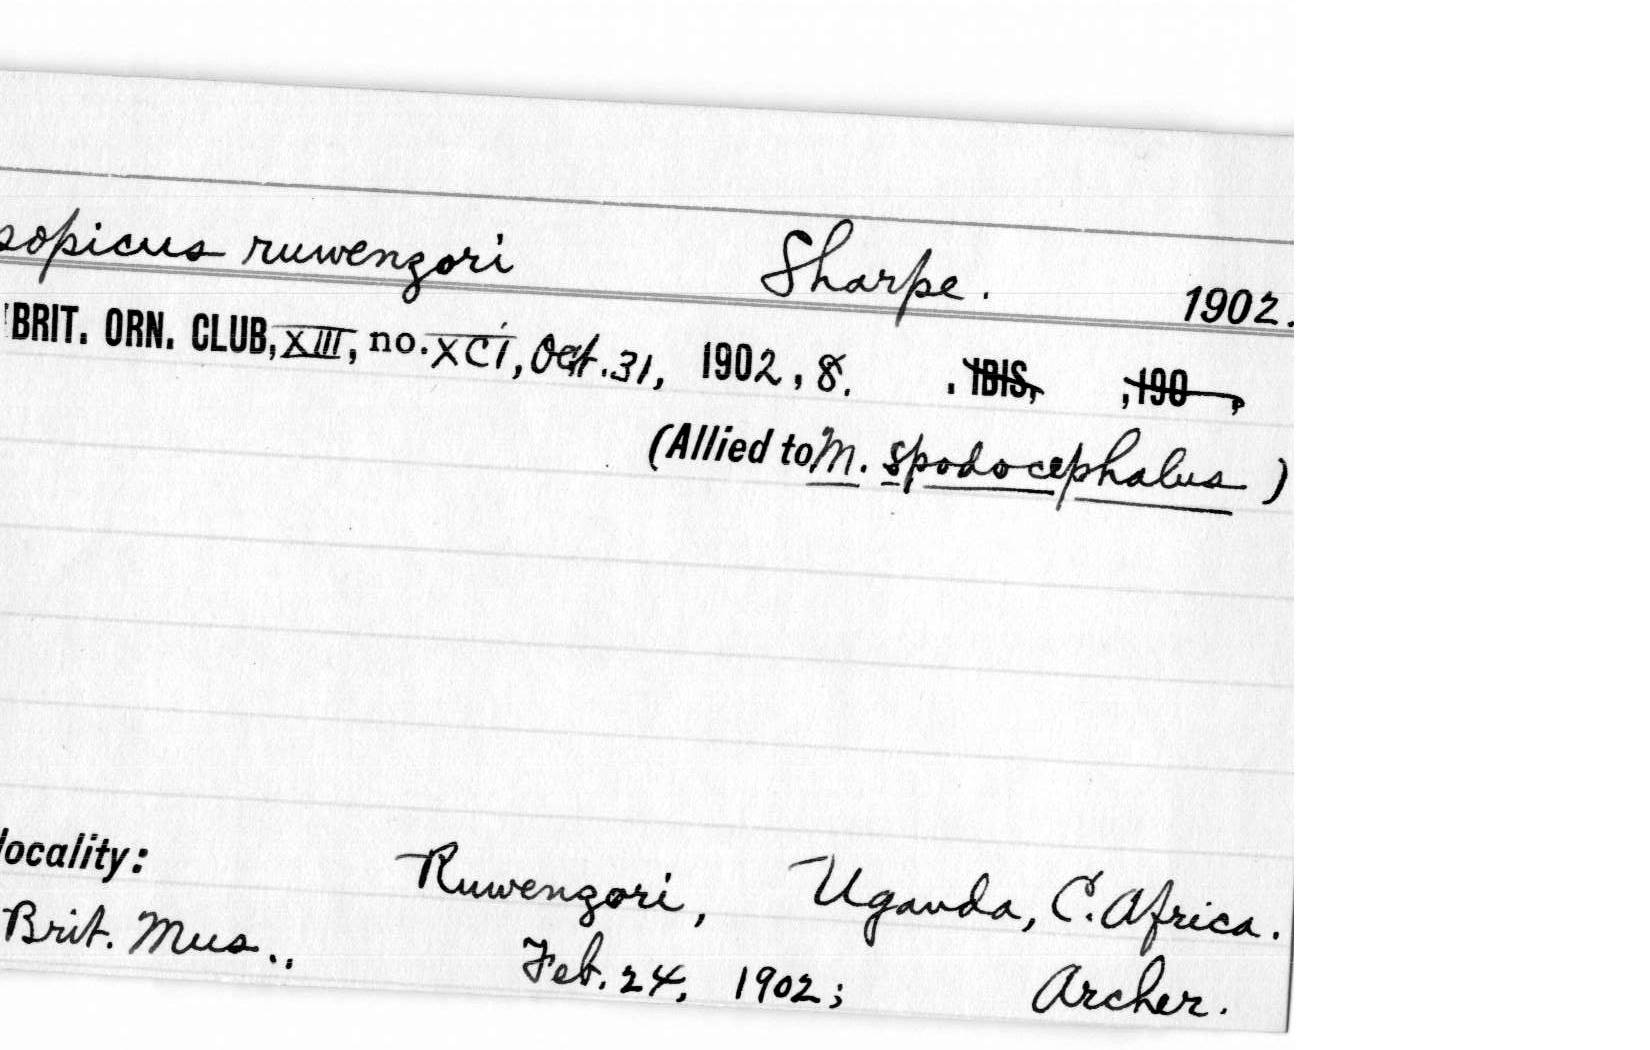 sopicus ruwenzori Sharpe. 1902.
BRIT. ORN. CLUB, XIII, no. XCI, Oct. 31, 1902, 8. . IBIS, , 190 ,
(Allied to M. spodocephalus )
locality: Ruwenzori, Uganda, C. Africa.
Brit. Mus.., Feb. 24, 1902; Archer.